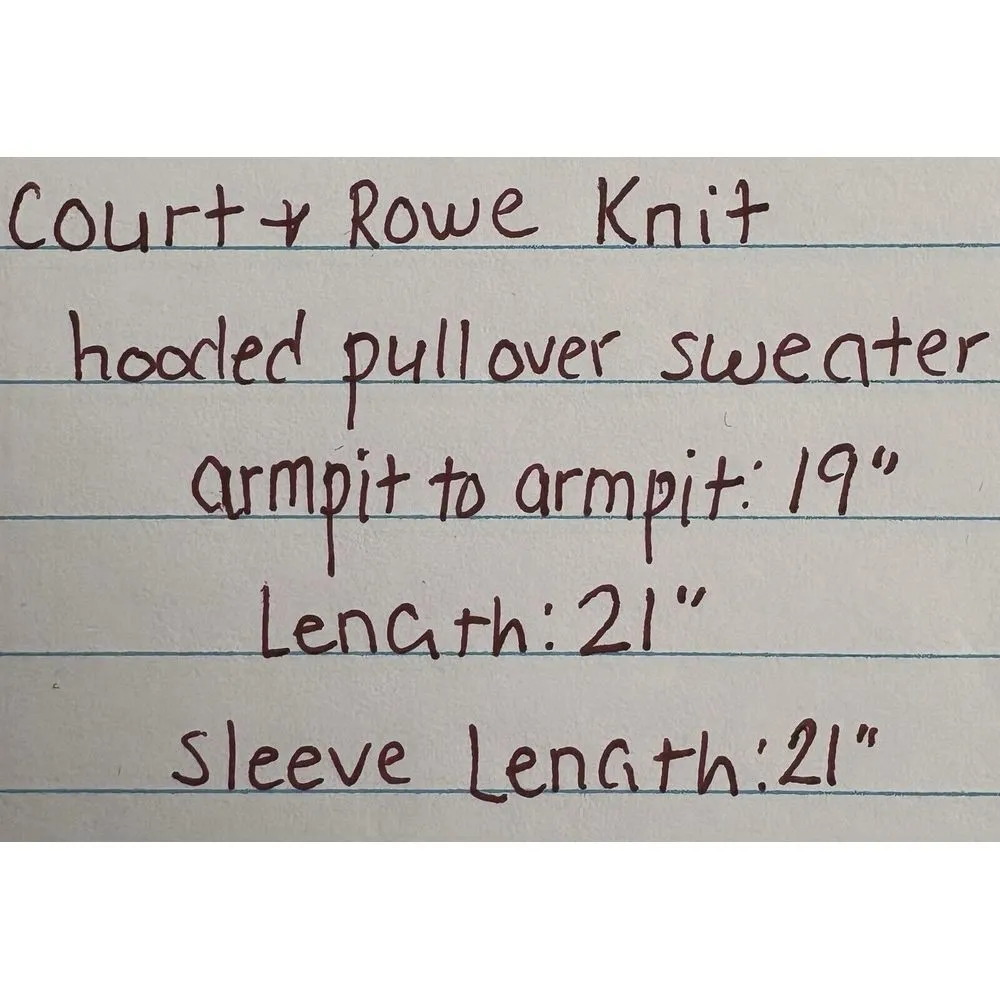 Court + Rowe Knit
hooded pullover sweater
armpit to armpit: 19"
Length: 21"
Sleeve Length: 21"